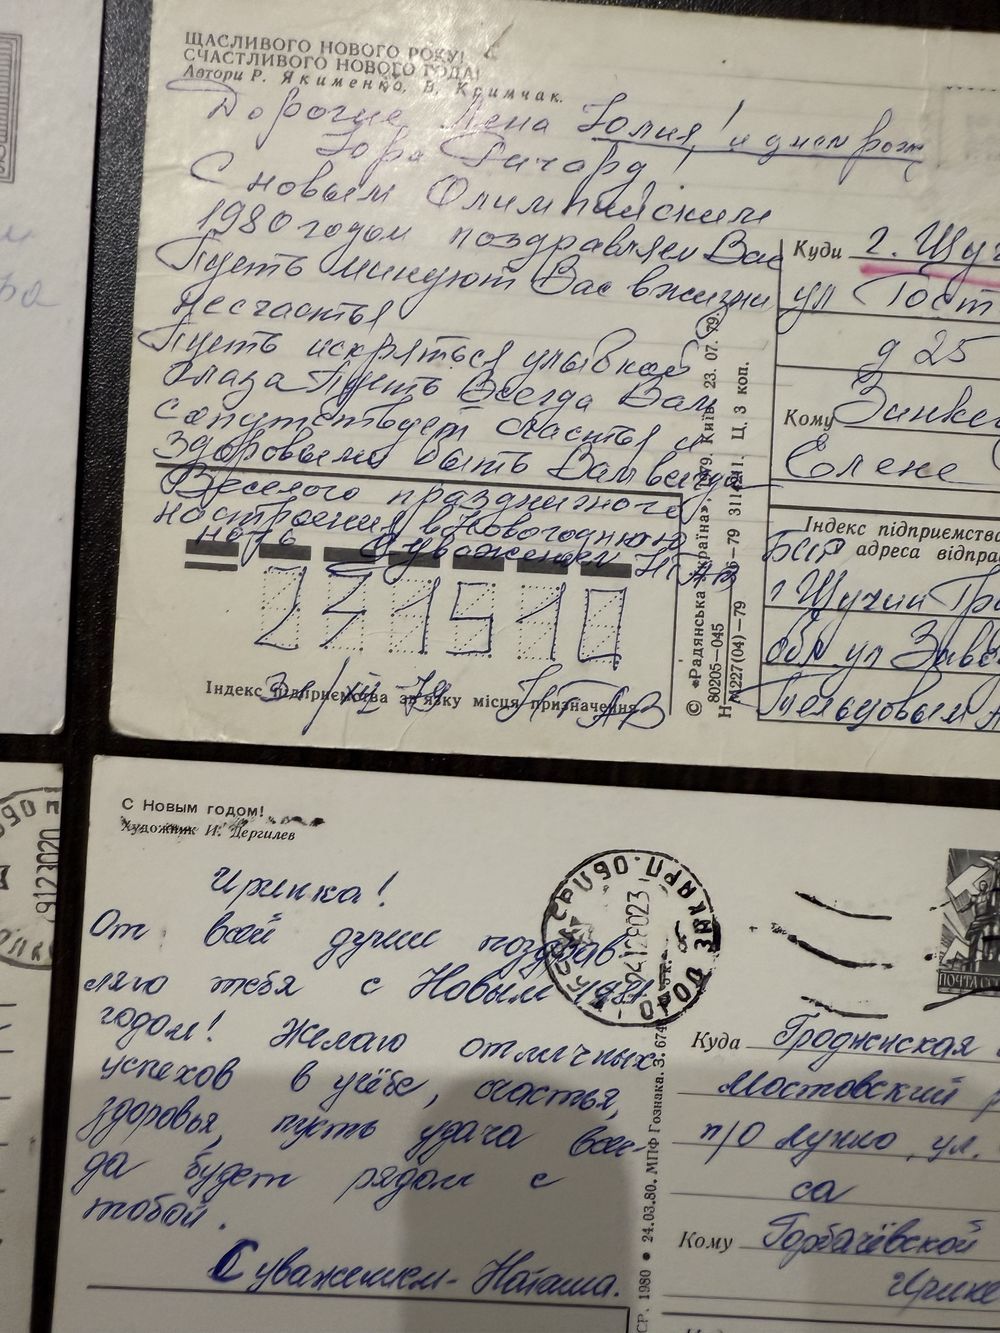 ЩАСЛИВОГО НОВОГО РОКУ!
СЧАСТЛИВОГО НОВОГО ГОДА!
Автори Р. Якименко, В. Кримчак.
Дорогие Лена Юлия! и днем рож
Юра Ричард!
С новым Олимпийским
1980 годом поздравляем Вас
Пусть минуют Вас в жизни
несчастья
Пусть искряться улыбкой
глаза Пусть Всегда Вам
сопутствует счастья и
здоровьем быть Вам всегда
Веселого праздничного
настроения в Новогоднюю
ночь С уважением НТАВ
231510
Індекс підприємства зв'язку місця призначення
/XII 79 НТАВ
© «Радянська Україна». 1979. Київ. 23. 07. 79.
80205—045
79 311211. Ц. 3 коп.
М227(04)—79
Куди г. Щу
ул Гост
д 25
Кому Зинке
Елене
Індекс підприємства
адреса відпра
БССР
г Щучин Гро
обл ул Заво
С Новым годом!
Художник И. Дергилев
Иринка!
От всей души поздрав-
ляю тебя с Новым 1981
годом! Желаю отличных
успехов в учёбе, счастья,
здоровья, пусть удача всег-
да будет рядом с
тобой.
С уважением - Наташа.
ЗАКАРП. ОБЛ.
ПОЧТА СС
СР. 1980 • 24.03.80. МПФ Гознака. З. 674
Куда Гродненская
Мостовский р
п/о Лунно, ул.
са
Кому Горбачёвской
Ирине
9123020